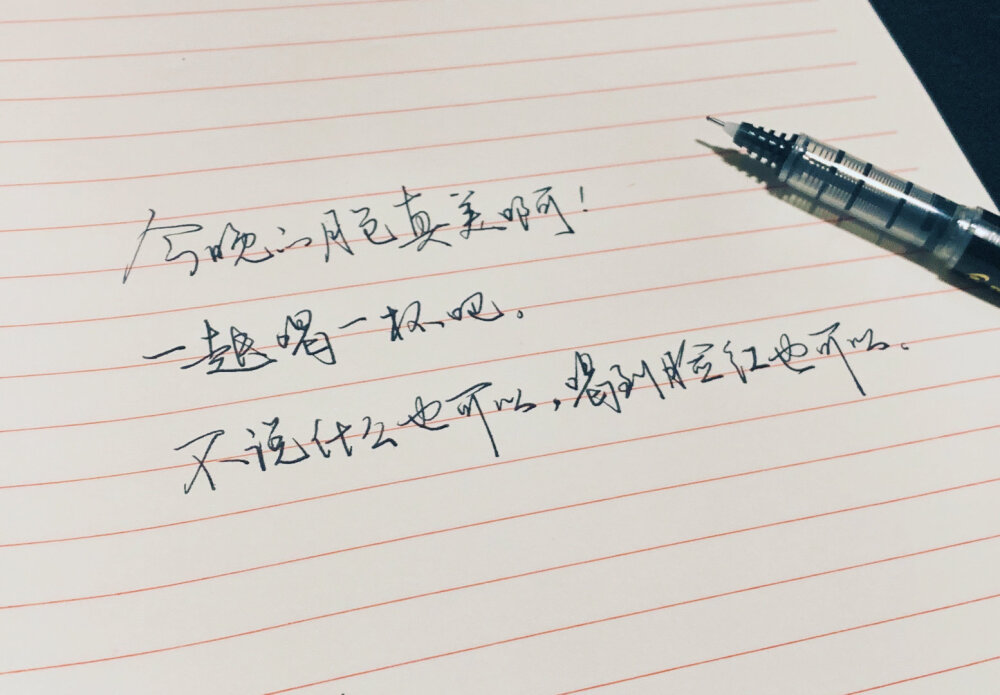 今晚的月色真美啊！
一起喝一杯吧。
不说什么也可以，喝到脸红也可以。